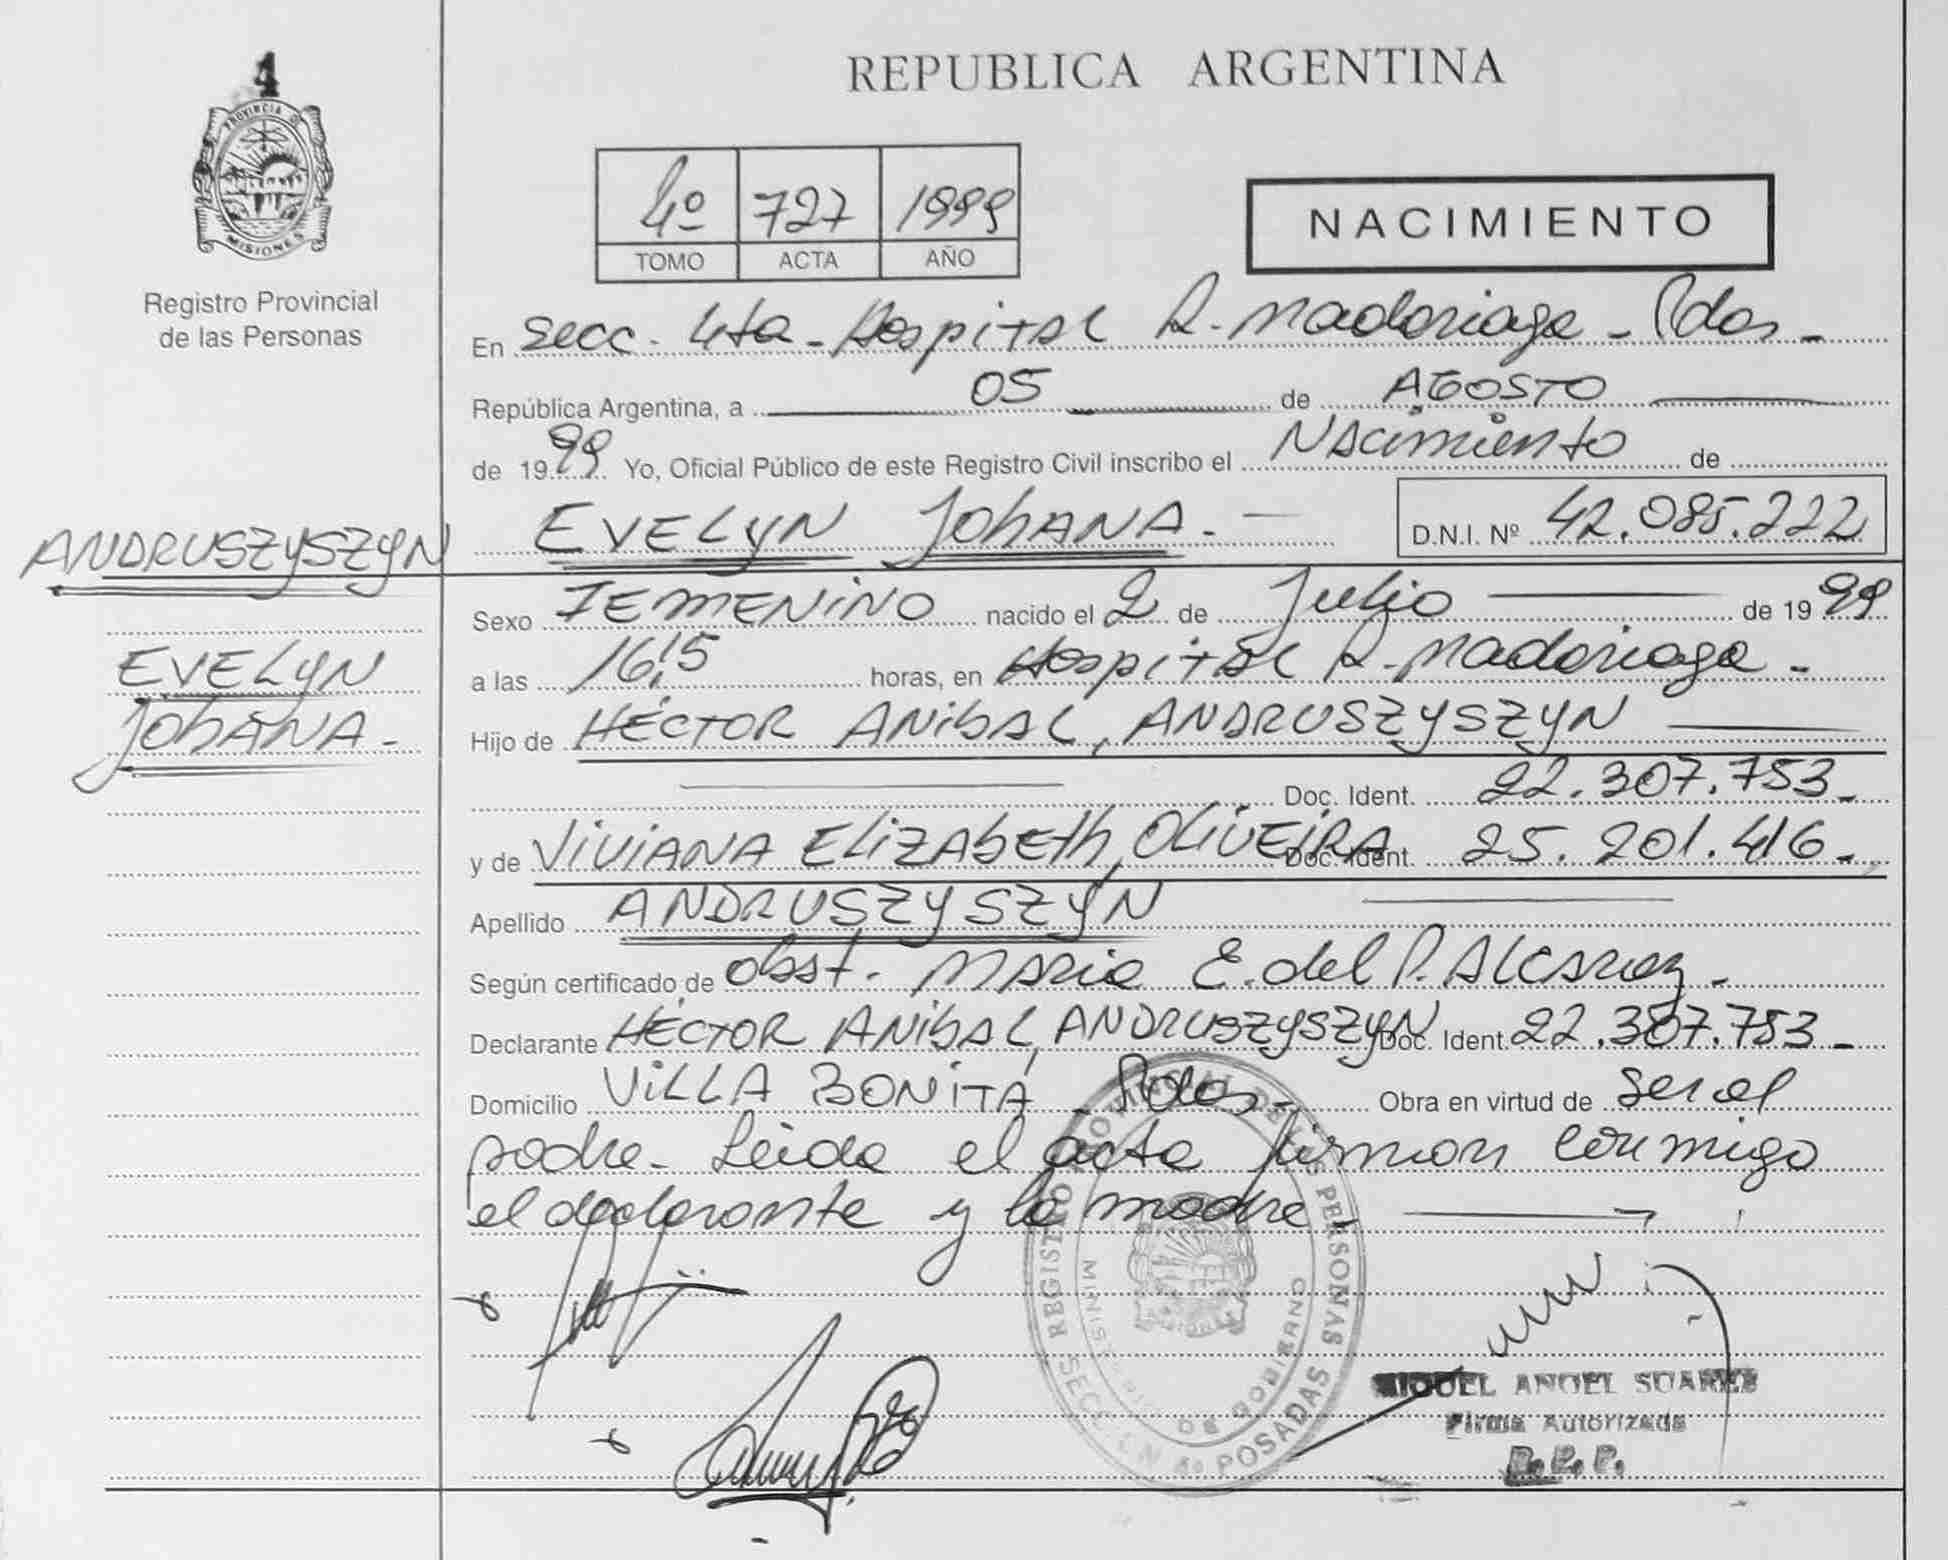 4
PROVINCIA DE
MISIONES
Registro Provincial
de las Personas
REPUBLICA ARGENTINA
4º 727 1999
TOMO ACTA AÑO
NACIMIENTO
En Secc. 4ta - Hospital R. Madariaga - Pdas -
República Argentina, a 05 de AGOSTO
de 1999 Yo, Oficial Público de este Registro Civil inscribo el Nacimiento de
EVELYN JOhANA.- D.N.I. Nº 42.085.222
ANDRUSZYSZYN
EVELYN
JOhANA.-
Sexo FEMENINO nacido el 2 de Julio de 1999
a las 16:15 horas, en Hospital R. Madariaga -
Hijo de HÉCTOR ANibAL, ANDRUSZYSZYN
Doc. Ident. 22.307.753.-
y de ViViANA ELiZAbETh, OLiVEiRA Doc. Ident. 25.201.416.-
Apellido ANDRUSZYSZYN
Según certificado de Obst. Maria E. del P. Alcaraz.-
Declarante HÉCTOR ANibAL, ANDRUSZYSZYN Doc. Ident. 22.307.753.-
Domicilio ViLLA BONiTA - Pdas - Obra en virtud de ser el
padre. Leida el acta firman conmigo
el declarante y la madre.-
REGISTRO PROVINCIAL DE LAS PERSONAS
MINISTERIO DE GOBIERNO
SECCION 4º POSADAS
MIGUEL ANGEL SUAREZ
Firma Autorizada
R.P.P.